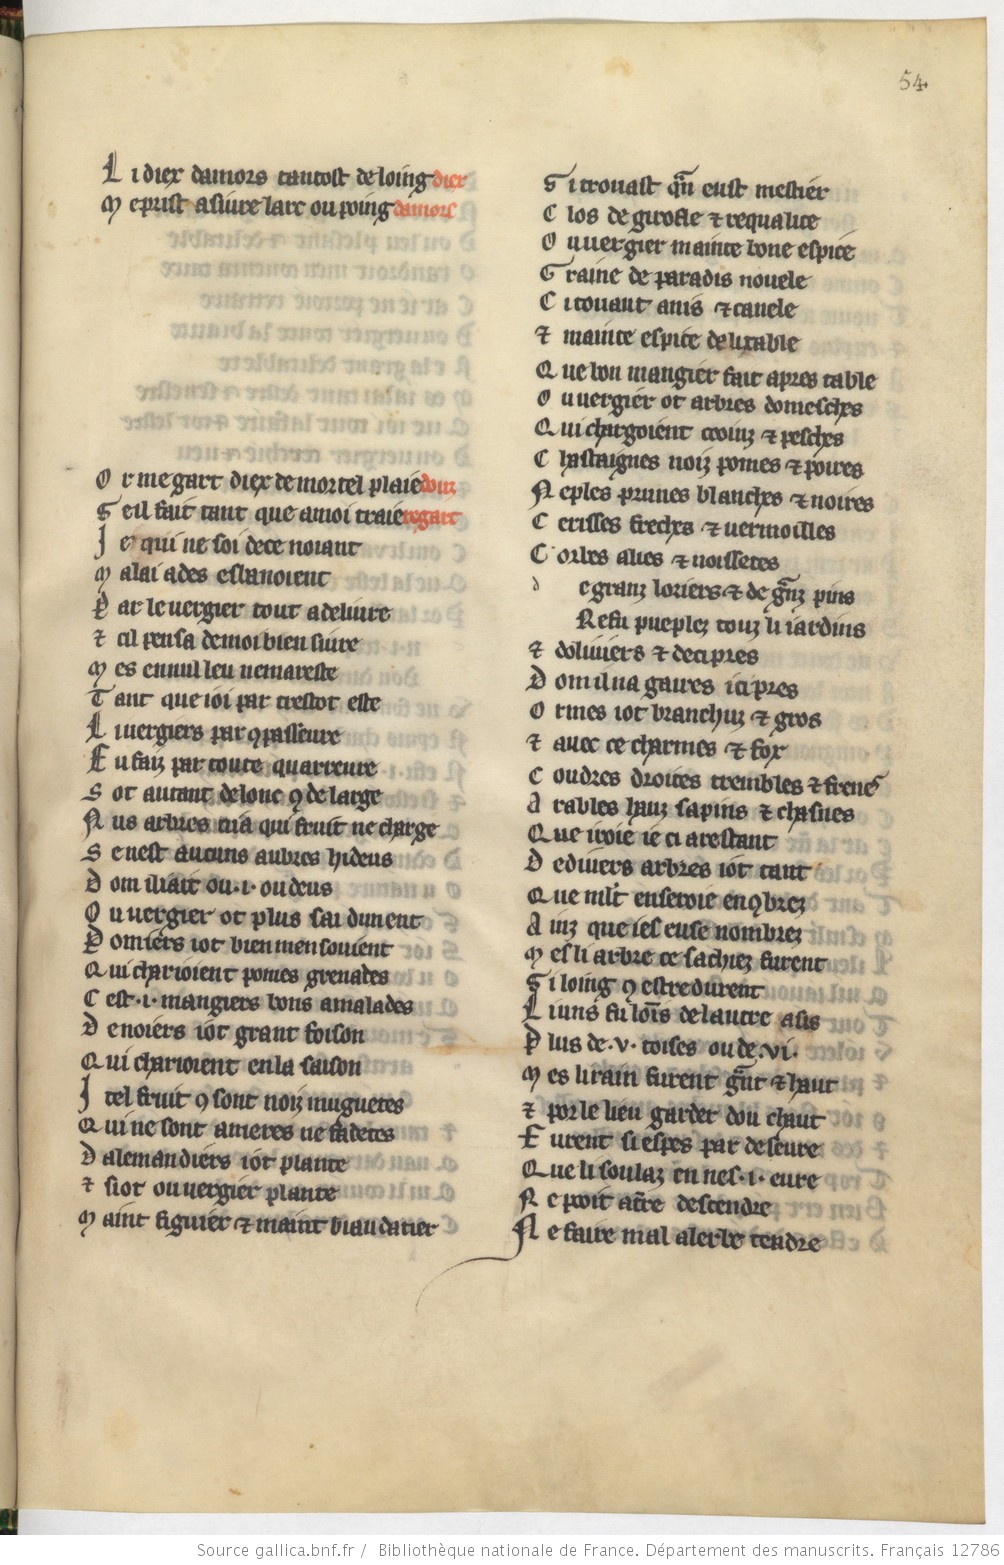 54
Li diex damors tantost de loing diex
Me prist a siure larc ou poing damors
Or me gart diex de mortel plaie douz
Seil fait tant que a moi traie regart
Je qui ne soi de ce noiant
Malai ades esbanoient
Par le uergier tout a deliure
⁊ cil pensa de moi bien siure
Mes en nul leu ne mareste
Tant que ioi par trestot este
Li uergiers par ꝯpasseure
Fu faiz par toute quarreure
Sot autant de lonc ꝯ de large
Nus arbres nia qui fruit ne charge
Se nest aucuns aubres hideus
Dom il iait ou .i. ou deus
Ou uergier ot plus sai dunent
Pomiers iot bien men souient
Qui charioient pomes grenades
Cest .i. mangiers bons a malades
De noiers iot grant foison
Qui charioient en la saison
Itel fruit ꝯ sont noiz muguetes
Qui ne sont ameres ne fadetes
Dalemandiers iot plante
⁊ siot ou uergier plante
Maint figuier ⁊ maint biau datier
Si trouast qͣn eust mestier
Clos de girofle ⁊ requalice
Ou uergier mainte bone espice
Graine de paradis nouele
Citouaut anis ⁊ canele
⁊ mainte espice delitable
Que bon mangier fait apres table
Ou uergier ot arbres domesches
Qui chargoient cooinz ⁊ pesches
Chastaignes noiz pomes ⁊ poires
Neples prunes blanches ⁊ noires
Cerisses fresches ⁊ uermoilles
Corbes alies ⁊ noissetes
d e granz loriers ⁊ de gͣnz pins
Refu pueplez touz li iardins
⁊ doliuiers ⁊ de cipres
Dom il na gaires ici pres
Ormes iot branchuz ⁊ gros
⁊ auec ce charmes ⁊ fox
Coudres droites trembles ⁊ frenes
Arables hauz sapins ⁊ chasnes
Que iroie ie ci arestant
De diuers arbres iot tant
Que mlt en seroie enꝯbrez
Ainz que ies euse nombrez
Mes li arbre ce sachiez furent
Si loing ꝯ estre durent
Li uns fu loīs de lautre asis
Plus de .v. toises ou de .vi.
Mes li rain furent gͣnt ⁊ haut
⁊ por le lieu garder dou chaut
Furent si espes par deseure
Que li soulaz en nes .i. eure
Ne poit at̄re descendre
Ne faire mal a lerbe tendre
Source gallica.bnf.fr / Bibliothèque nationale de France. Département des manuscrits. Français 12786